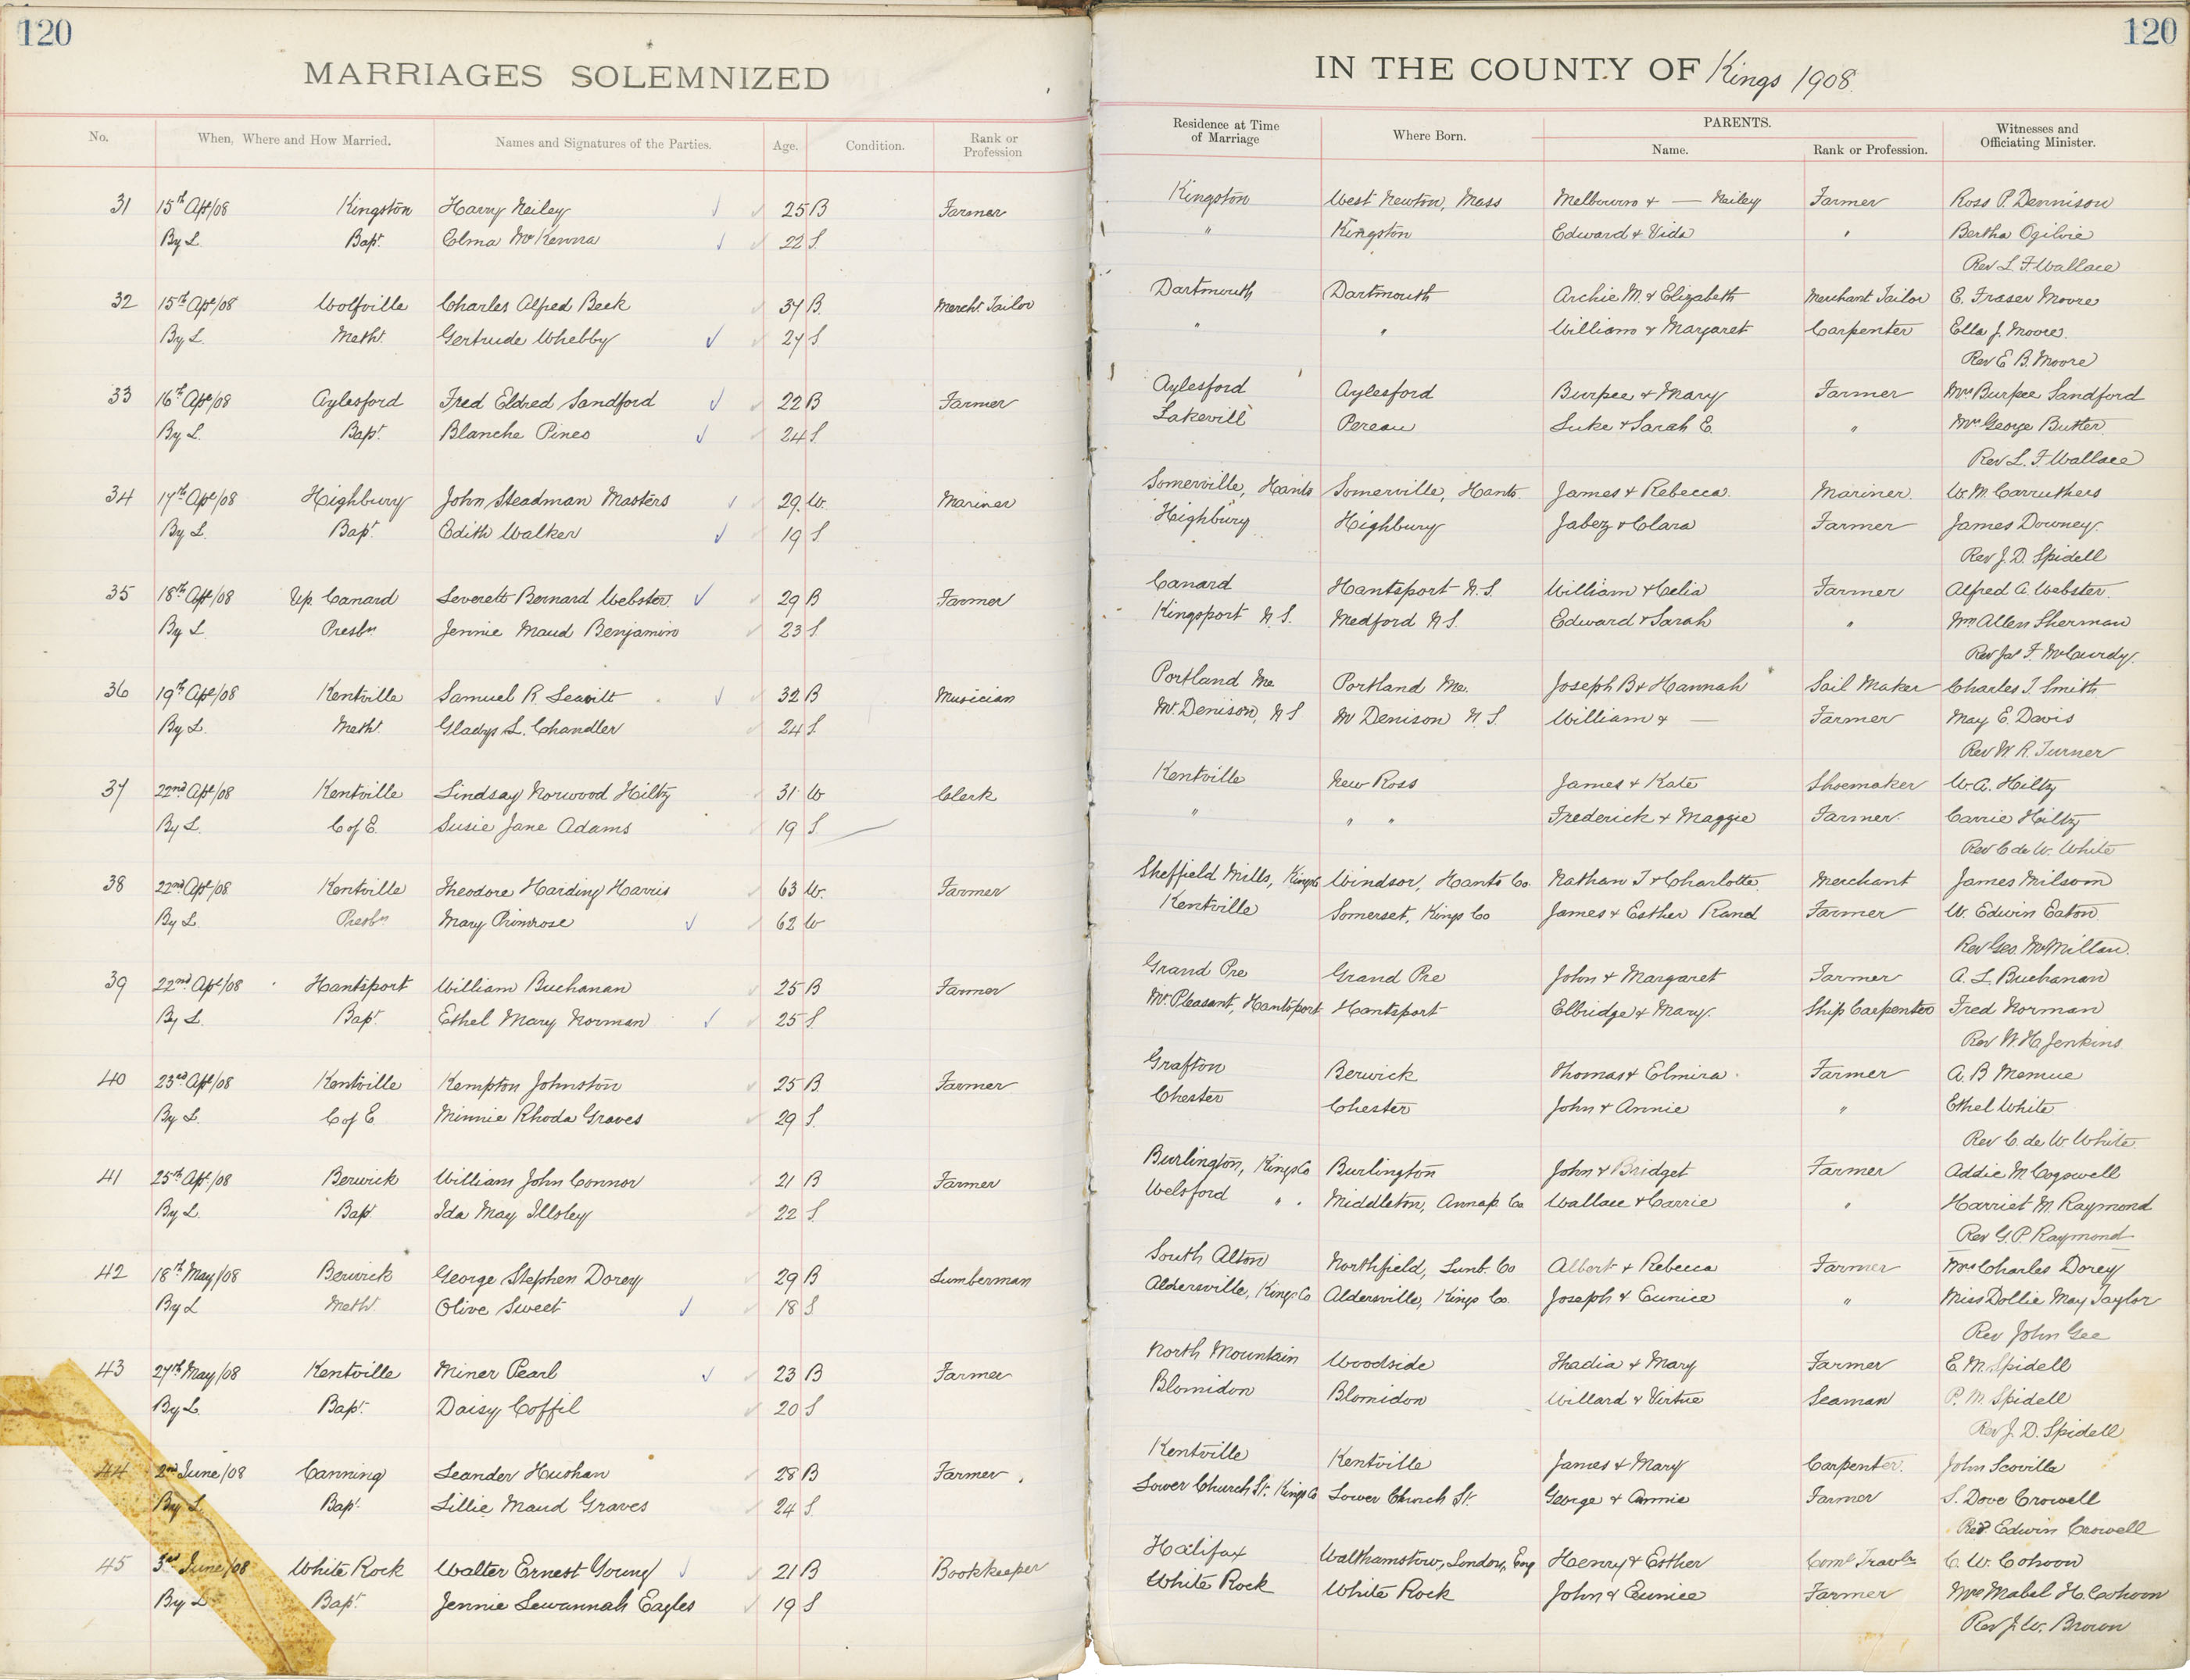 120
MARRIAGES SOLEMNIZED
No. When, Where and How Married. Names and Signatures of the Parties. Age. Condition. Rank or Profession
31 15th Apl/08 Kingston Harry Neiley 25 B Farmer
By L. Bapt. Elma McKenna 22 S.
32 15th Apl/08 Wolfville Charles Alfred Beek 37 B. Mercht. Tailor
By L. Meth. Gertrude Whebby 27 S.
33 16th Apl/08 Aylesford Fred Eldred Sandford 22 B Farmer
By L. Bapt. Blanche Pineo 24 S.
34 17th Apl/08 Highbury John Steadman Masters 29. W. Mariner
By L. Bapt. Edith Walker 19 S.
35 18th Apl/08 Up. Canard Leverett Bernard Webster 29 B Farmer
By L. Presbn Jennie Maud Benjamin 23 S
36 19th Apl/08 Kentville Samuel R. Leavitt 32 B Musician
By L. Meth. Gladys L. Chandler 24 S.
37 22nd Apl/08 Kentville Lindsay Norwood Hiltz 31 W Clerk
By L. C of E. Susie Jane Adams 19 S.
38 22nd Apl/08 Kentville Theodore Harding Harris 63 W. Farmer
By L. Presbn Mary Primrose 62 W
39 22nd Apl/08 Hantsport William Buchanan 25 B Farmer
By L. Bapt. Ethel Mary Norman 25 S.
40 23rd Apl/08 Kentville Kempton Johnston 25 B. Farmer
By L. C of E Minnie Rhoda Graves 29 S.
41 25th Apl/08 Berwick William John Connor 21 B Farmer
By L. Bapt. Ida May Illsley 22 S.
42 18th May/08 Berwick George Stephen Dorey 29 B Lumberman
By L Meth. Olive Sweet 18 S
43 27th May/08 Kentville Miner Pearl 23 B Farmer
By L. Bapt. Daisy Coffil 20 S
44 2nd June/08 Canning Leander Hushan 28 B Farmer.
By L. Bapt. Lillie Maud Graves 24 S.
45 3rd June/08 White Rock Walter Ernest Young 21 B Bookkeeper
By L Bapt. Jennie Lewannah Eagles 19 S
120
IN THE COUNTY OF Kings 1908.
Residence at Time of Marriage Where Born. PARENTS. Name. Rank or Profession. Witnesses and Officiating Minister.
Kingston West Newton, Mass Melbourn & — Neiley Farmer Ross P. Dennison
" Kingston Edward & Vida " Bertha Ogilvie
Rev L. F. Wallace
Dartmouth Dartmouth Archie M. & Elizabeth Merchant Tailor E. Fraser Moore
" " William & Margaret Carpenter Ella J. Moore.
Rev E B. Moore
Aylesford Aylesford Burpee & Mary Farmer Mrs Burpee Sandford
Lakevill Pereau Luke & Sarah E. " Mrs George Butler
Rev L. F. Wallace
Somerville, Hants Somerville, Hants. James & Rebecca. Mariner. W. M. Carruthers
Highbury Highbury Jabez & Clara Farmer James Downey.
Rev J. D. Spidell
Canard Hantsport N.S. William & Celia Farmer Alfred A. Webster.
Kingsport N.S. Medford N.S. Edward & Sarah " Wm Allen Sherman
Rev Jas F. McCurdy.
Portland Me. Portland Me. Joseph B & Hannah Sail Maker Charles I. Smith
Mt. Denison, N S Mt Denison N.S. William & — Farmer May E. Davis
Rev W. R. Turner
Kentville New Ross James & Kate Shoemaker W. A. Hiltz
" " " Frederick & Maggie Farmer. Carrie Hiltz
Rev C de W. White
Sheffield Mills, Kings Co Windsor, Hants Co. Nathan T & Charlotte Merchant James Milsom
Kentville Somerset, Kings Co James & Esther Rand Farmer W. Edwin Eaton
Rev Geo. McMillan.
Grand Pre Grand Pre John & Margaret Farmer A. L. Buchanan
Mt. Pleasant, Hantsport Hantsport Elbridge & Mary. Ship Carpenter Fred Norman
Rev W. H. Jenkins.
Grafton Berwick Thomas & Elmira. Farmer A. B
Chester Chester John & Annie " Ethel White
Rev C. de W. White
Burlington, Kings Co Burlington John & Bridget Farmer Addie M Cogswell
Welsford " . Middleton, Annap. Co Wallace & Carrie " Harriet M. Raymond
Rev G. P. Raymond
South Alton Northfield, Lunb. Co Albert & Rebecca Farmer Mrs Charles Dorey
Aldersville, Kings Co Aldersville, Kings Co. Joseph & Eunice " Miss Dollie May Taylor
Rev John Gee
North Mountain Woodside Thadia & Mary Farmer E. M. Spidell
Blomidon Blomidon Willard & Virtue Seaman P. M. Spidell
Rev J. D. Spidell
Kentville Kentville James & Mary Carpenter. John Scoville
Lower Church St. Kings Co Lower Church St. George & Annie Farmer S. Dove Crowell
Rev Edwin Crowell
Halifax Walthamstow, London, Eng Henry & Esther Coml Travlr C. W. Cohoon
White Rock White Rock John & Eunice Farmer Mrs Mabel H. Cohoon
Rev J. W. Brown